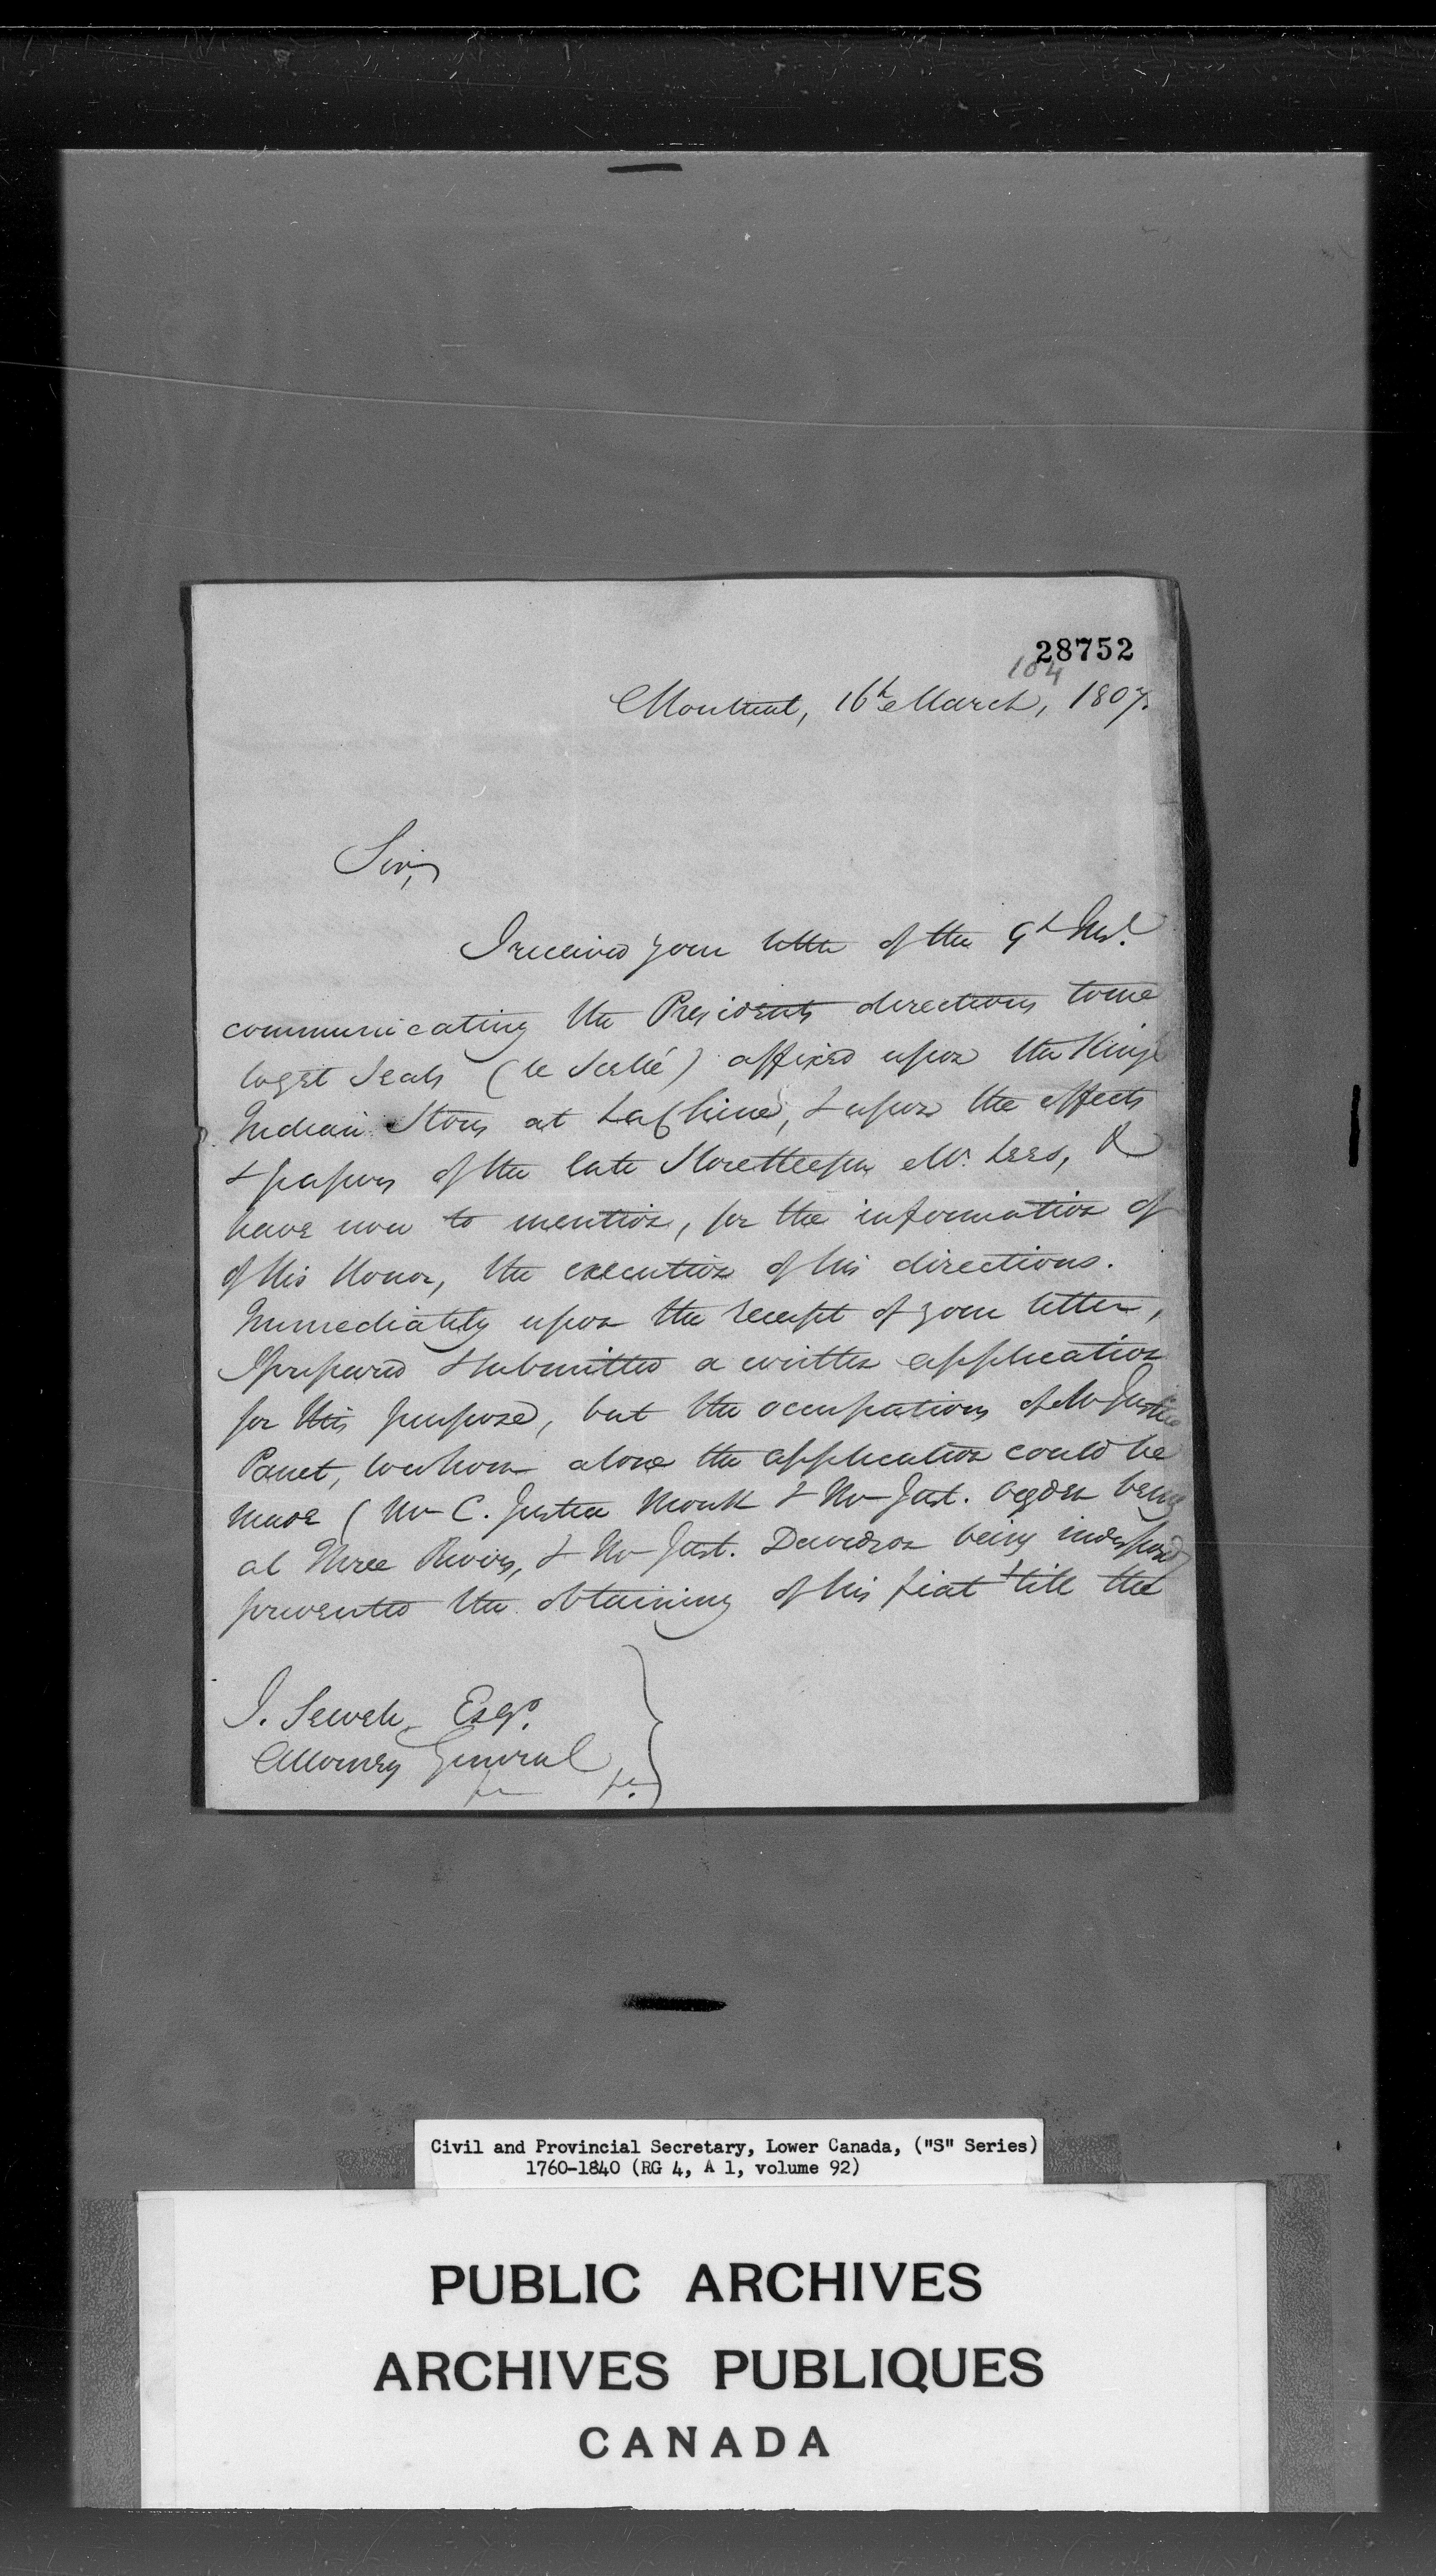 28752
104
Montreal, 16th March, 1807.
Sir,
I received your letter of the 9th Inst.
communicating the Presidents directions to me
to get Seals (le Scellé) affixed upon the Kings
Indian Stores at LaChine, & upon the effects
& papers of the late Storekeeper Mr. Lees, &
have now to mention, for the information of
of His Honor, the execution of his directions.
Immediately upon the receipt of your letter,
I prepared & submitted a written application
for this purpose, but the occupations of Mr Justice
Panet, to whom alone the application could be
made (Mr C. Justice Monk & Mr Just. Ogden being
at Three Rivers, & Mr Just. Davidson being indisposed)
prevented the obtaining of his fiat till the
J. Sewell, Esqr.
Attorney General
Civil and Provincial Secretary, Lower Canada, ("S" Series)
1760-1840 (RG 4, A 1, volume 92)
PUBLIC ARCHIVES
ARCHIVES PUBLIQUES
CANADA